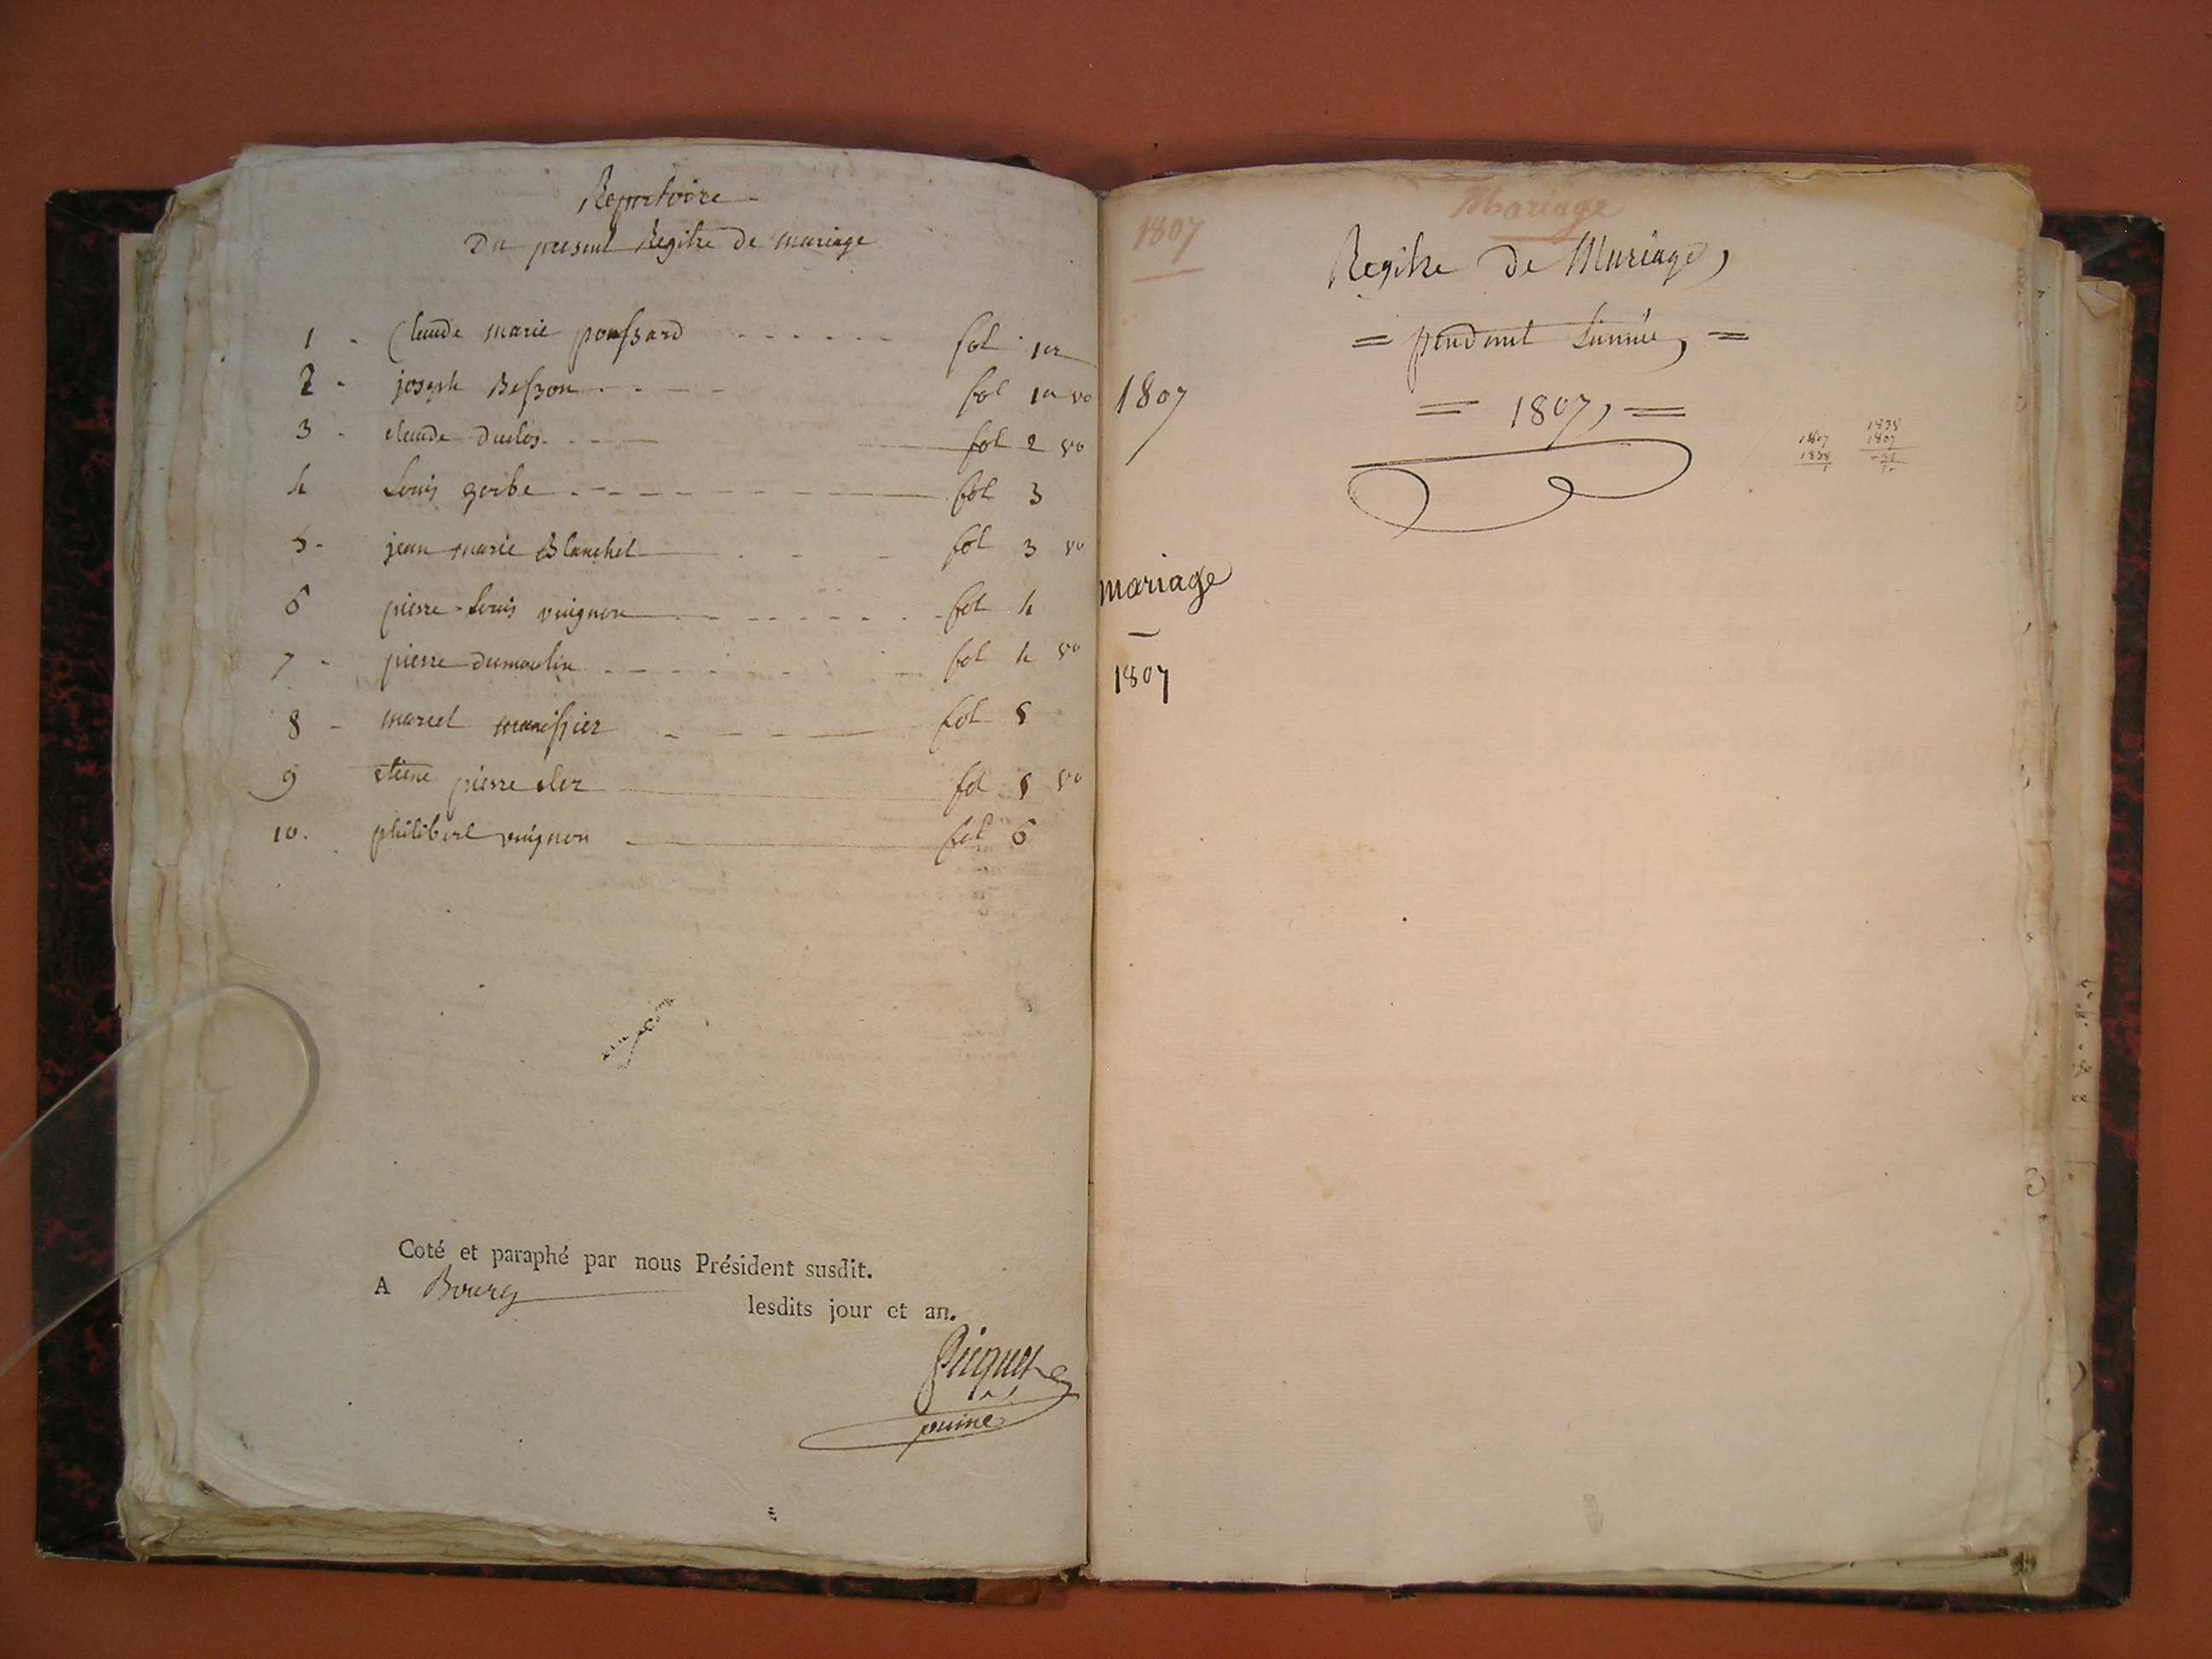 Repertoire
Du present Regitre de mariage
1 - Claude marie poussard - - - - - - fol 1er
2 - joseph Besson - - - - fol 1er vo
3 - claude duclos - - - fol 2 vo
4 Louis gerbe - - - - - - - fol 3
5 - jean marie Blanchet - - - fol 3 vo
6 pierre Louis vuignon - - - - - - fol 4
7 - pierre dumoulin - - - - - - fol 4 vo
8 - marcel manissier - - - - fol 5
9 etiene pierre cler fol 5 vo
10. philibert vuignon fol 6
Coté et paraphé par nous Président susdit.
A Bourg lesdits jour et an.
Picquet
puiné
1807
Mariage
Regitre de Mariage,
= pendant Lannée, =
1807
= 1807, =
1807
1838
1838
1807
mariage
1807